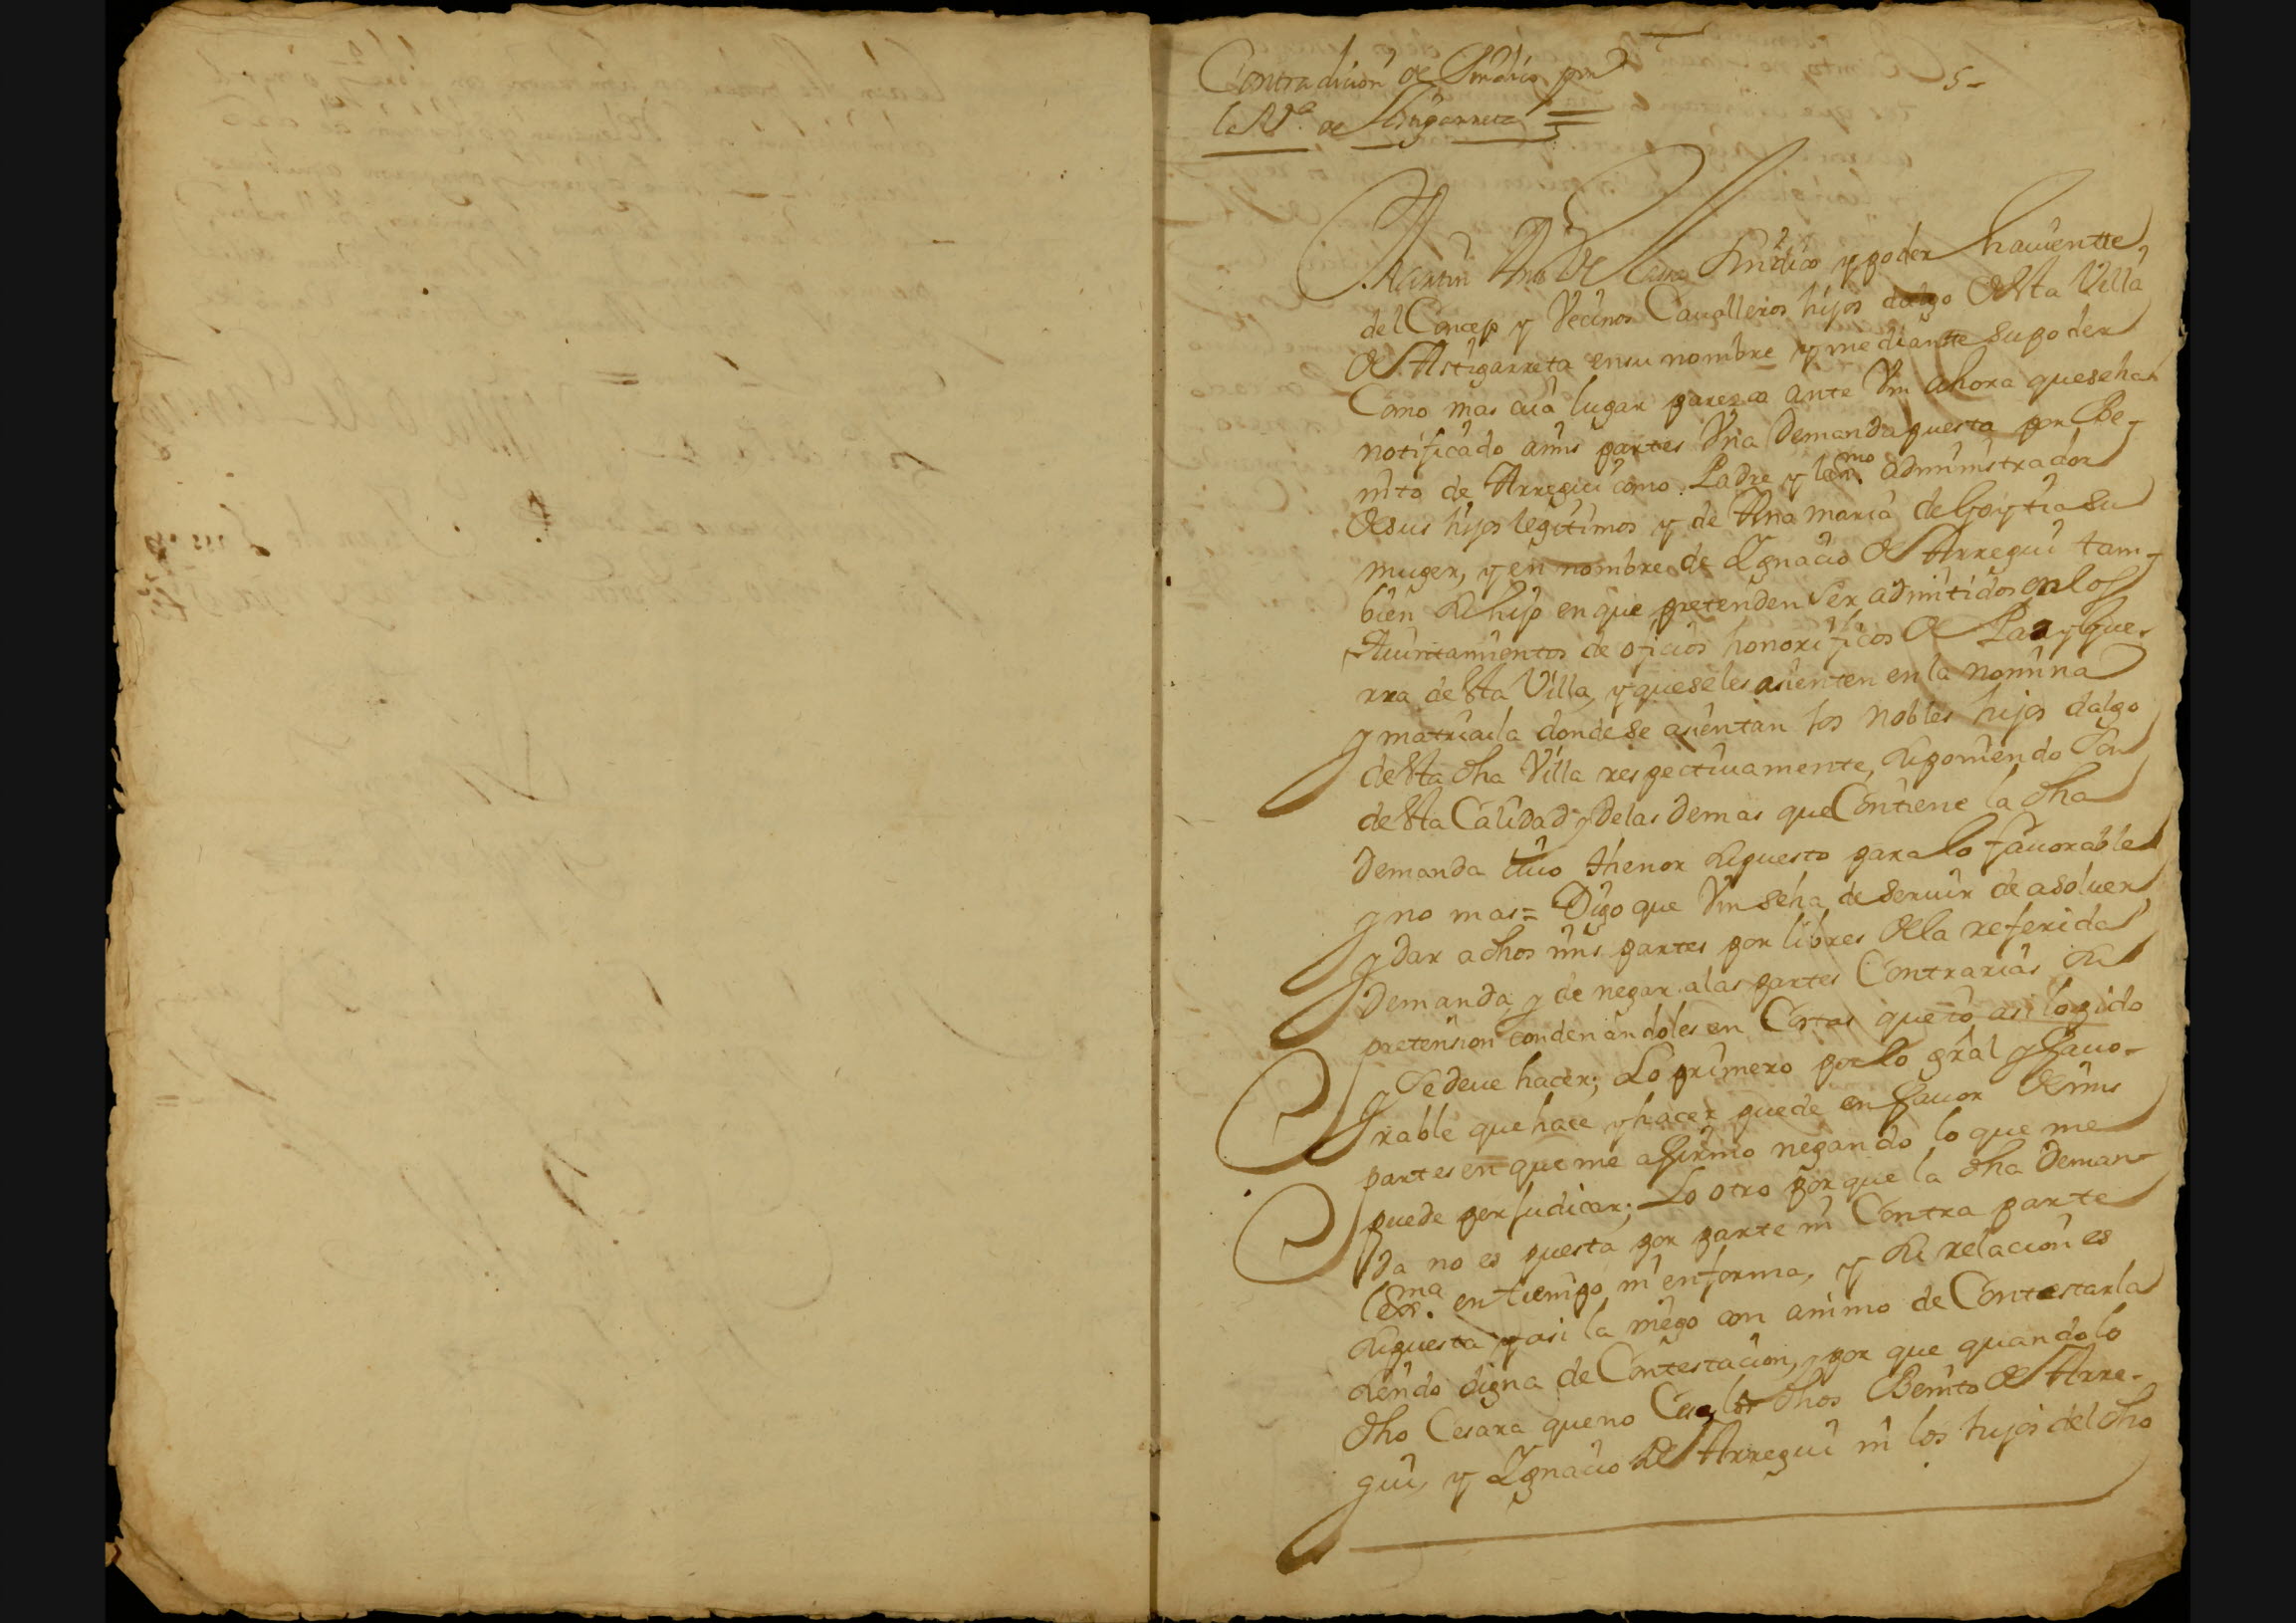 Contradicion de Sindico por
la Vª. de Astigarreta
5-
Martin de Sindico y poder hauientte
del Concejo y Vecinos Caualleros hijos dalgo de esta Villa
de Astigarreta en su nombre y mediantte su poder
Como mas aia lugar parezco ante Vm ahora que se ha
notificado a mis partes Vna Demanda puesta por Be-
nito de Arregui como Padre y lexmo. administrador
de sus hijos legitimos y de Ana maria de Goytia su
muger, y en nombre de Ygnacio de Arregui tam-
bien su hijo en que pretenden ser admitidos en los
Aiuntamientos de oficios honorificos de Paz y Gue-
rra de esta Villa, y que se les asienten en la nomina
y matricula donde se asientan los nobles hijos dalgo
de esta dha Villa respectiuamente, suponiendo son
de esta Calidad y de las demas que Contiene la dha
Demanda cuio thenor supuesto para lo fauorable
y no mas = Digo que Vm se ha de seruir de asoluer
y dar a dhos mis partes por libres de la referida
Demanda, y de negar a las partes Contrarias su
pretension condenandoles en Costas que asi lo pido
y se deue hacer; Lo primero por lo gral y fauo-
rable que hace y hacer puede en fauor de mis
partes en que me afirmo negando lo que me
puede perjudicar; Lo otro por que la dha Deman-
da no es puesta por parte ni Contra parte
lexma. en tiempo ni en forma, y su relacion es
supuesta y asi la niego con animo de Contestarla
siendo digna de Contestacion, y por que quando lo
dho Cesara que no Cesa los dhos Benito de Arre-
gui, y Ygnacio de Arregui ni los hijos del dho